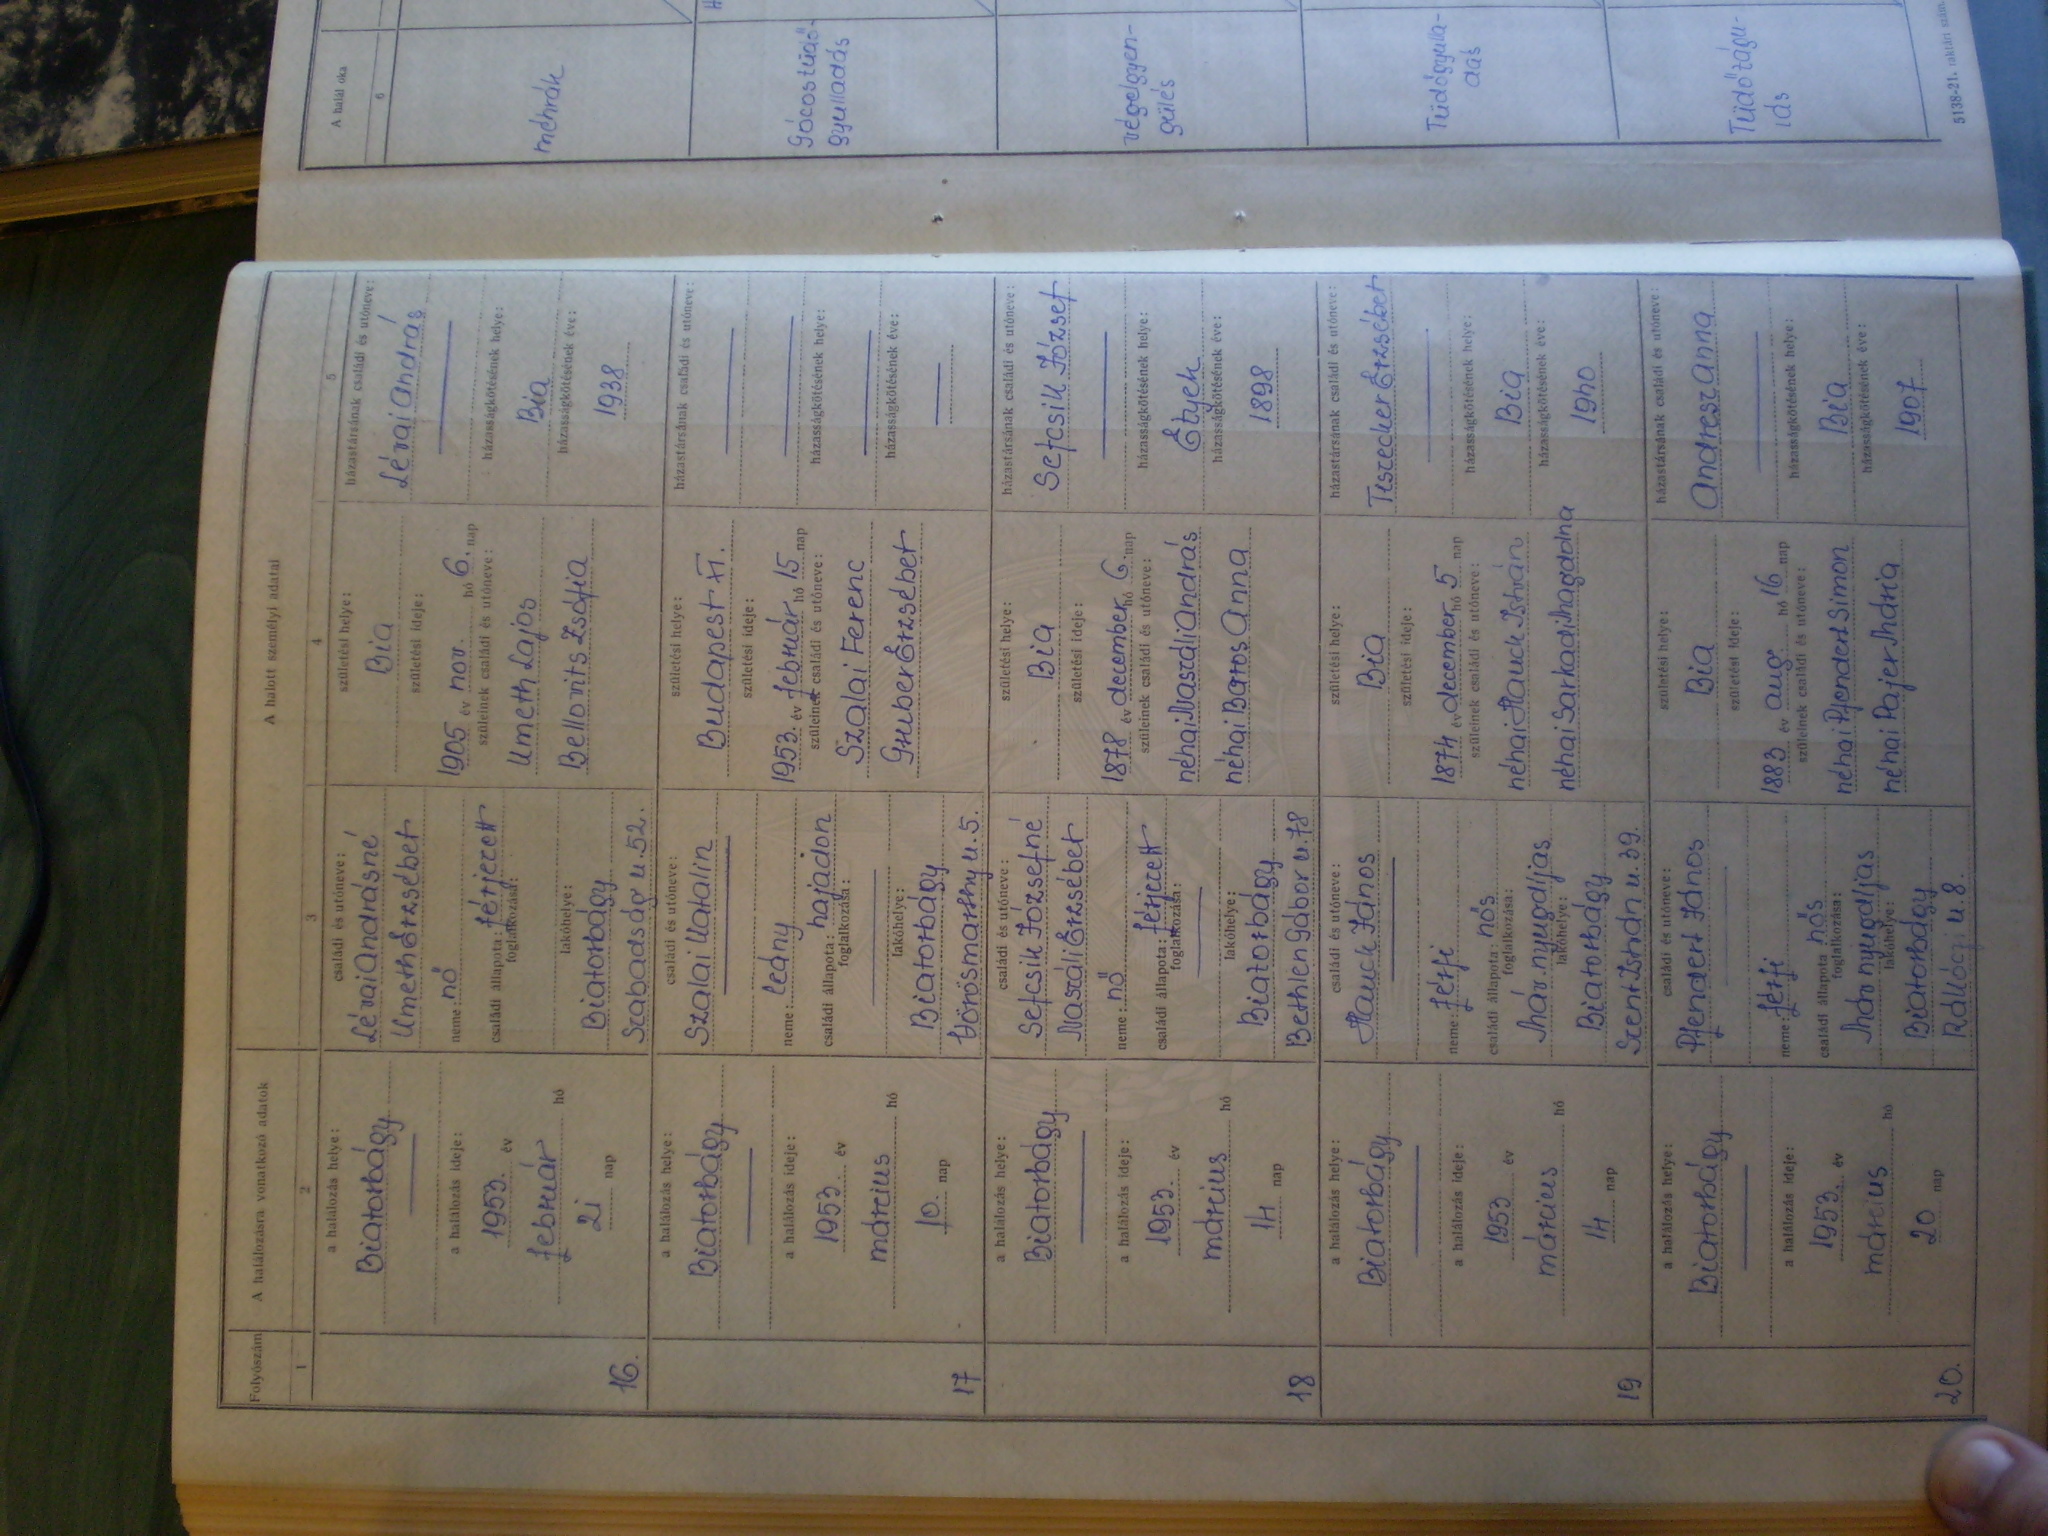 Folyószám
A halálozásra vonatkozó adatok
A halott személyi adatai
A halál oka
1
2
3
4
5
6
16.
a halálozás helye:
Biatorbágy
a halálozás ideje:
1953. év
február hó
21 nap
családi és utóneve:
Lévai Andrásné
Umeth Erzsébet
neme: nő
családi állapota: férjezett
foglalkozása:
lakóhelye:
Biatorbágy
Szabadság u. 52.
születési helye:
Bia
születési ideje:
1905 év nov. hó 6. nap
szüleinek családi és utóneve:
Umeth Lajos
Bellovits Zsófia
házastársának családi és utóneve:
Lévai András
házasságkötésének helye:
Bia
házasságkötésének éve:
1938
méhrák
17
a halálozás helye:
Biatorbágy
a halálozás ideje:
1953. év
március hó
10. nap
családi és utóneve:
Szalai Katalin
neme: leány
családi állapota: hajadon
foglalkozása:
lakóhelye:
Biatorbágy
Vörösmarthy u. 5.
születési helye:
Budapest XI.
születési ideje:
1953. év február hó 15 nap
szüleinek családi és utóneve:
Szalai Ferenc
Gruber Erzsébet
házastársának családi és utóneve:
házasságkötésének helye:
házasságkötésének éve:
Gócostüdő-
gyulladás
18
a halálozás helye:
Biatorbágy
a halálozás ideje:
1953. év
március hó
14 nap
családi és utóneve:
Sefcsik Józsefné
Naszáli Erzsébet
neme: nő
családi állapota: férjezett
foglalkozása:
lakóhelye:
Biatorbágy
Bethlen Gábor u. 78
születési helye:
Bia
születési ideje:
1878 év december hó 6. nap
szüleinek családi és utóneve:
néhai Naszáli András
néhai Baros Anna
házastársának családi és utóneve:
Sefcsik József
házasságkötésének helye:
Etyek
házasságkötésének éve:
1898
végelgyen-
gülés
19
a halálozás helye:
Biatorbágy
a halálozás ideje:
1953 év
március hó
14 nap
családi és utóneve:
Hauck János
neme: férfi
családi állapota: nős
foglalkozása:
Máv nyugdíjas
lakóhelye:
Biatorbágy
Szent István u. 39.
születési helye:
Bia
születési ideje:
1874 év december hó 5 nap
szüleinek családi és utóneve:
néhai Hauck István
néhai Sarkadi Magdolna
házastársának családi és utóneve:
Teszecker Erzsébet
házasságkötésének helye:
Bia
házasságkötésének éve:
1940
Tüdőgyulla-
dás
20.
a halálozás helye:
Biatorbágy
a halálozás ideje:
1953. év
március hó
20 nap
családi és utóneve:
Pfendert János
neme: férfi
családi állapota nős
foglalkozása:
Máv nyugdíjas
lakóhelye:
Biatorbágy
Rákóczi u. 8.
születési helye:
Bia
születési ideje:
1883 év aug. hó 16 nap
szüleinek családi és utóneve:
néhai Pfendert Simon
néhai Pajer Mária
házastársának családi és utóneve:
Andresz Anna
házasságkötésének helye:
Bia
házasságkötésének éve:
1907
Tüdőtágu-
lás
5138-21. raktári szám.